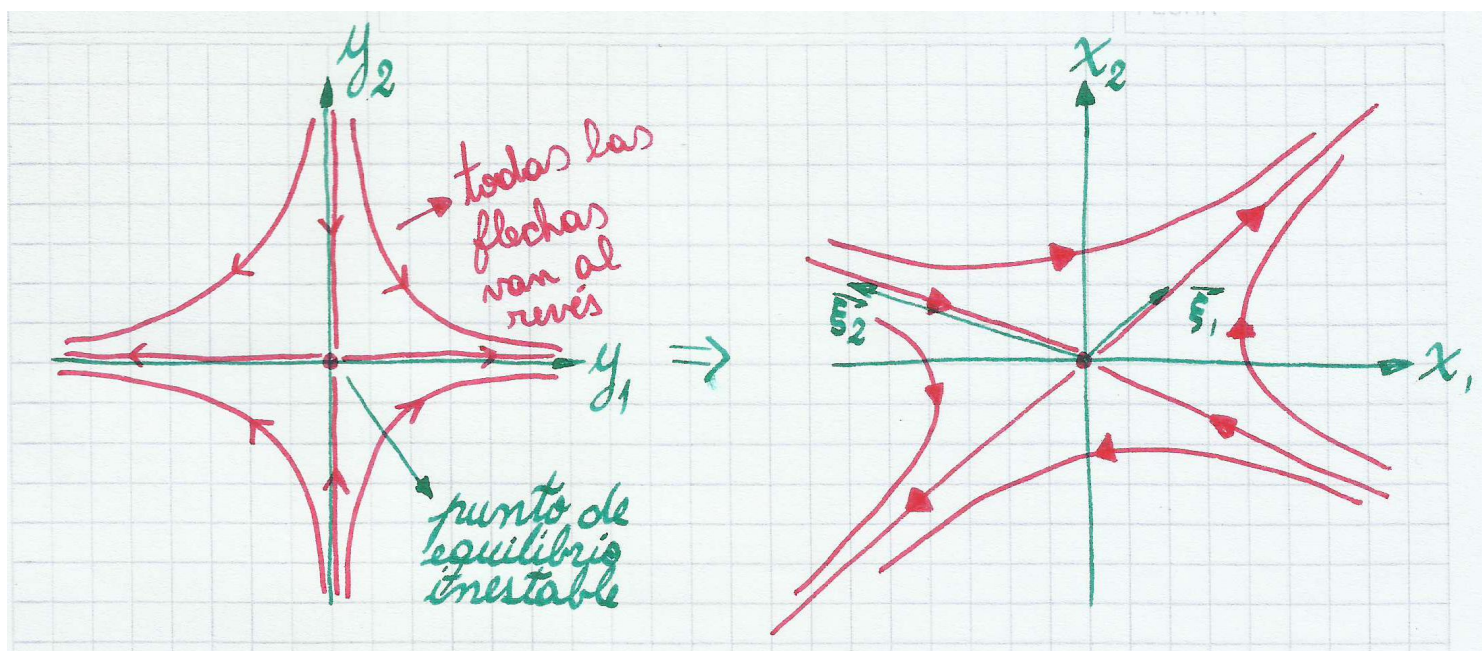 y₂
todas las
flechas
van al
revés
y₁
punto de
equilibrio
inestable
⇒
x₂
ξ₂
ξ₁
x₁